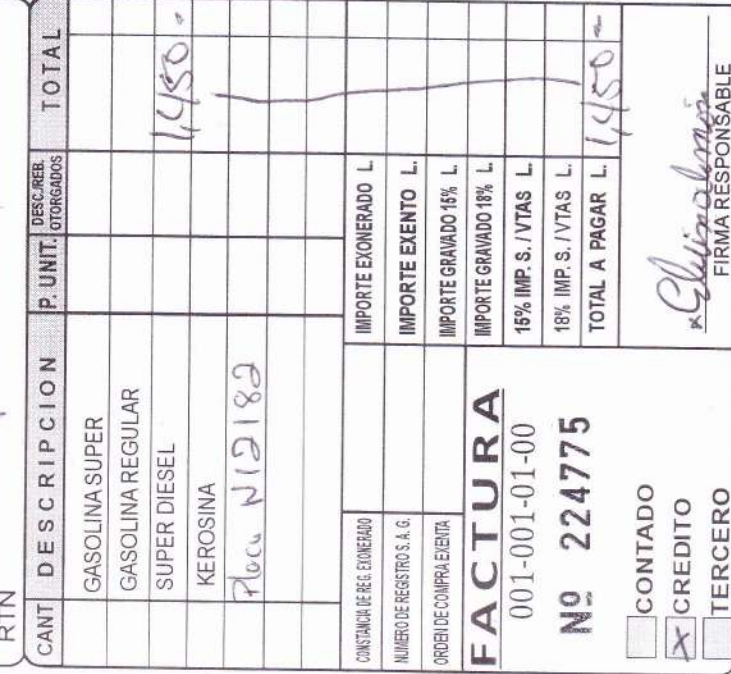 RTN
CANT DESCRIPCION P. UNIT. DESC./REB. OTORGADOS TOTAL
GASOLINA SUPER
GASOLINA REGULAR
SUPER DIESEL 1,450.-
KEROSINA
Placa N12182
CONSTANCIA DE REG. EXONERADO
NUMERO DE REGISTRO S. A. G.
ORDEN DE COMPRA EXENTA
IMPORTE EXONERADO L.
IMPORTE EXENTO L.
IMPORTE GRAVADO 15% L.
IMPORTE GRAVADO 18% L.
15% IMP. S. / VTAS L.
18% IMP. S. / VTAS L.
TOTAL A PAGAR L. 1,450-
FACTURA
001-001-01-00
Nº 224775
CONTADO
X CREDITO
TERCERO
FIRMA RESPONSABLE